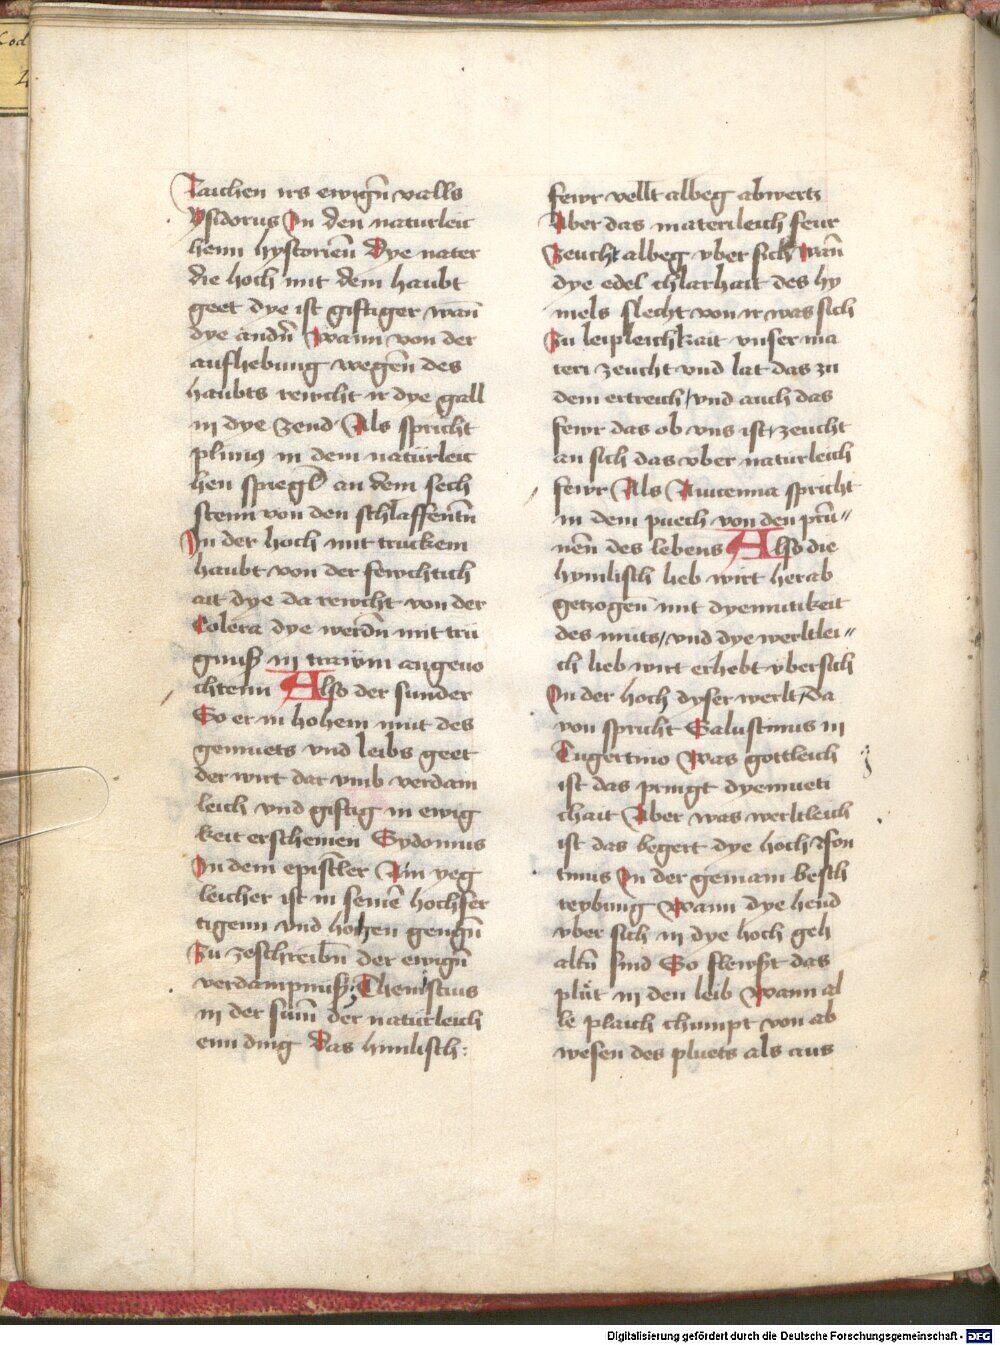 Taichen irs ewign̄ valls
ysidorus In den naturleic
henn hystorien̄ Dye nater
die hoch mit dem haubt
geet dye ist giftiger wan̄
dye andn̄ wann von der
aufhebung wegen̄ des
haubts rewcht ir dye gall
in dye zend Als spricht
plinius in dem naturleic
hen spiegel an dem sech
stenn von den schlaffentn̄
In der hoch mit truckem
haubt von der fewchtich
ait dye da rewcht von der
Colera dye werdn̄ mit trü
gnuß in trawm angeuo
chtenn Also der sunder
So er in hohem mut des
gemuets vnd leibs geet
der wirt dar vmb verdam
leich vnd giftig in ewig
keit erscheinen Sydonius
In dem epistler Ain yeg
leicher ist in seinē hochfer
tigenn vnd hohen gengn̄
Zu zeschreibn̄ der ewign̄
verdampnuß Themistius
in der sum̄ der naturleich
enn ding Das himlisch:
fewr vellt albeg abwertz
Aber das materileich feur
Zeucht albeg vber sich wan̄
dye edel chlarhait des hy
mels slecht von ir was sich
Zu leipleichkait vnser ma
teri zeucht vnd lat das zu
dem ertreich/vnd auch das
fewr das ob vns ist/zeucht
an sich das vber naturleich
fewr Als Auicenna spricht
in dem puech von den prū〃
nen̄ des lebens Also die
hymlisch lieb wirt herab
getzogen̄ mit dyemutikeit
des muts/vnd dye werltlei〃
ch lieb wirt erhebt vbersich
In der hoch dyser werlt/da
von spricht Salustinus in
Iugertino was gottleich
ist das pringt dyemueti
chait Aber was werltleich
ist das begert dye hoch Ison
tinus In der gemain besch
reybung wann dye hend
vber sich in dye hoch geh
altn̄ sind So flewßt das
plüt in den leib wann al
le plaich chumpt von ab
wesen des pluets als aus
Digitalisierung gefördert durch die Deutsche Forschungsgemeinschaft - DFG